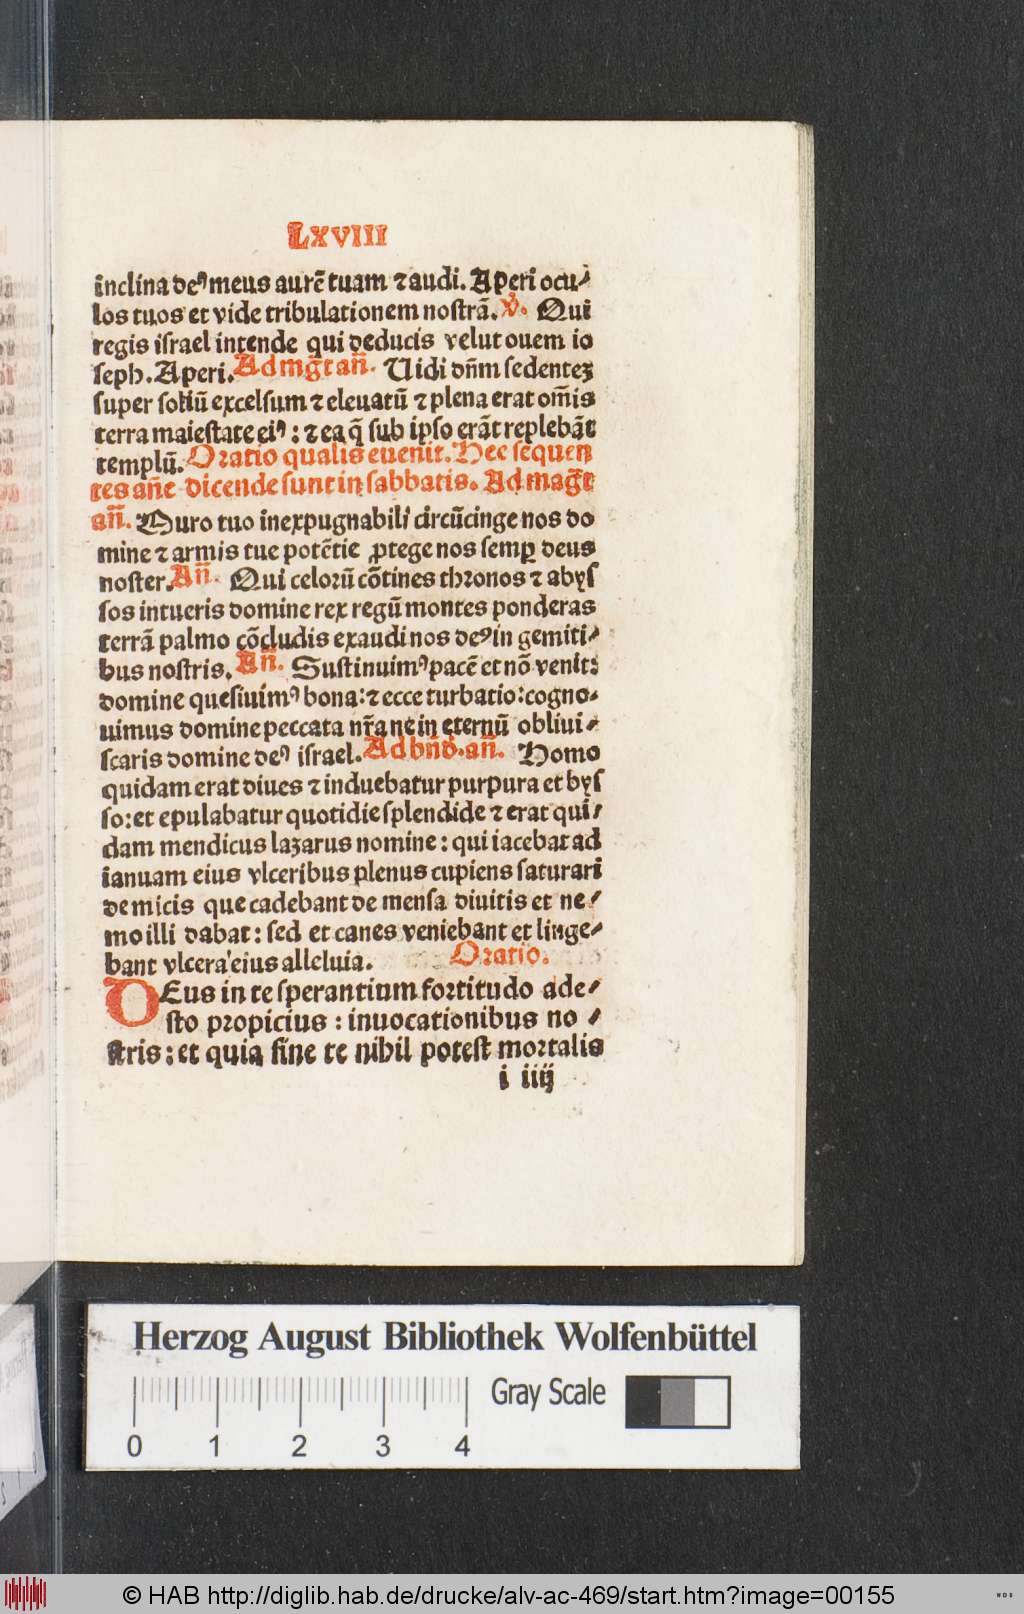 LXVIII
inclina deꝰ meus aurē tuam ⁊ audi. Aperi ocu⸗
los tuos et vide tribulationem nostrā. v̊. Qui
regis israel intende qui deducis velut ouem io
seph. Aperi. Ad mg̅t an̅. Uidi dn̅m sedentez
super soliū excelsum ⁊ eleuatū ⁊ plena erat om̅is
terra maiestate eiꝰ : ⁊ ea q̄ sub ipso erāt replebāt
templū. Oratio qualis euenit. Hec sequen
tes an̅e dicende sunt in sabbatis. Ad mag̅t
an̅. Muro tuo inexpugnabili circūcinge nos do
mine ⁊ armis tue potētie ꝓtege nos semꝑ deus
noster. An̅. Qui celorū cōtines thronos ⁊ abys
sos intueris domine rex regū montes ponderas
terrā palmo cōcludis exaudi nos deꝰ in gemiti⸗
bus nostris. An̅. Sustinuimꝰ pacē et nō venit:
domine quesiuimꝰ bona: ⁊ ecce turbatio: cogno⸗
uimus domine peccata nr̅a ne in eternū obliui⸗
scaris domine deꝰ israel. Ad bn̅d̅. an̅. Homo
quidam erat diues ⁊ induebatur purpura et bys
so: et epulabatur quotidie splendide ⁊ erat qui⸗
dam mendicus lazarus nomine: qui iacebat ad
ianuam eius vlceribus plenus cupiens saturari
de micis que cadebant de mensa diuitis et ne⸗
mo illi dabat: sed et canes veniebant et linge⸗
bant vlcera eius alleluia. Oratio.
DEus in te sperantium fortitudo ade⸗
sto propicius : inuocationibus no⸗
stris: et quia sine te nihil potest mortalis
i iiij
Herzog August Bibliothek Wolfenbüttel
Gray Scale
0 1 2 3 4
© HAB http://diglib.hab.de/drucke/alv-ac-469/start.htm?image=00155